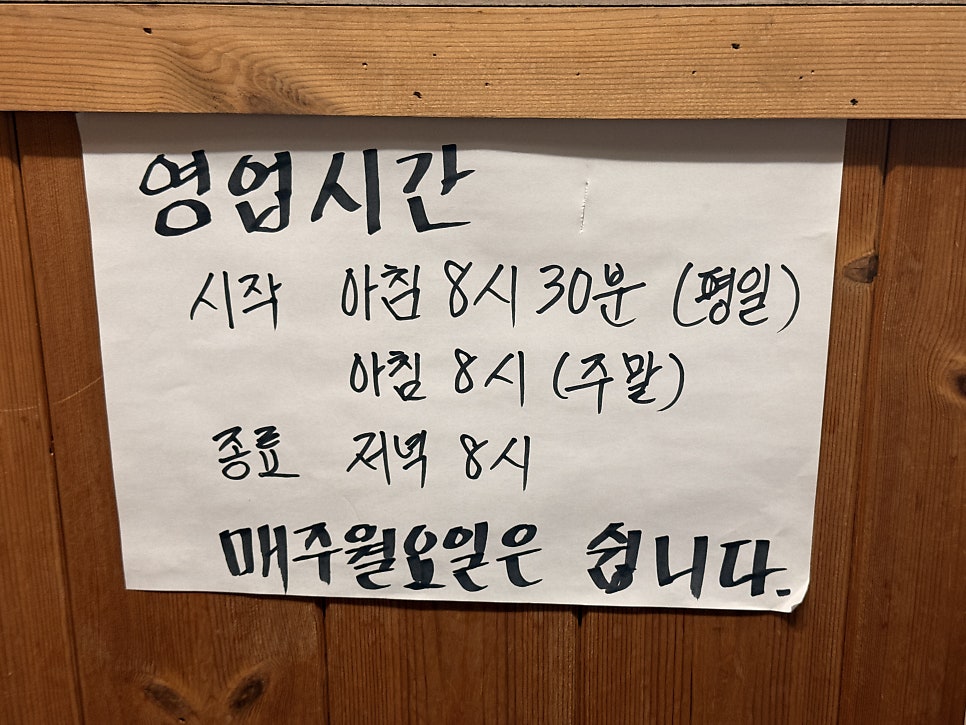 영업시간
시작 아침 8시 30분 (평일)
아침 8시 (주말)
종료 저녁 8시
매주월요일은 쉽니다.